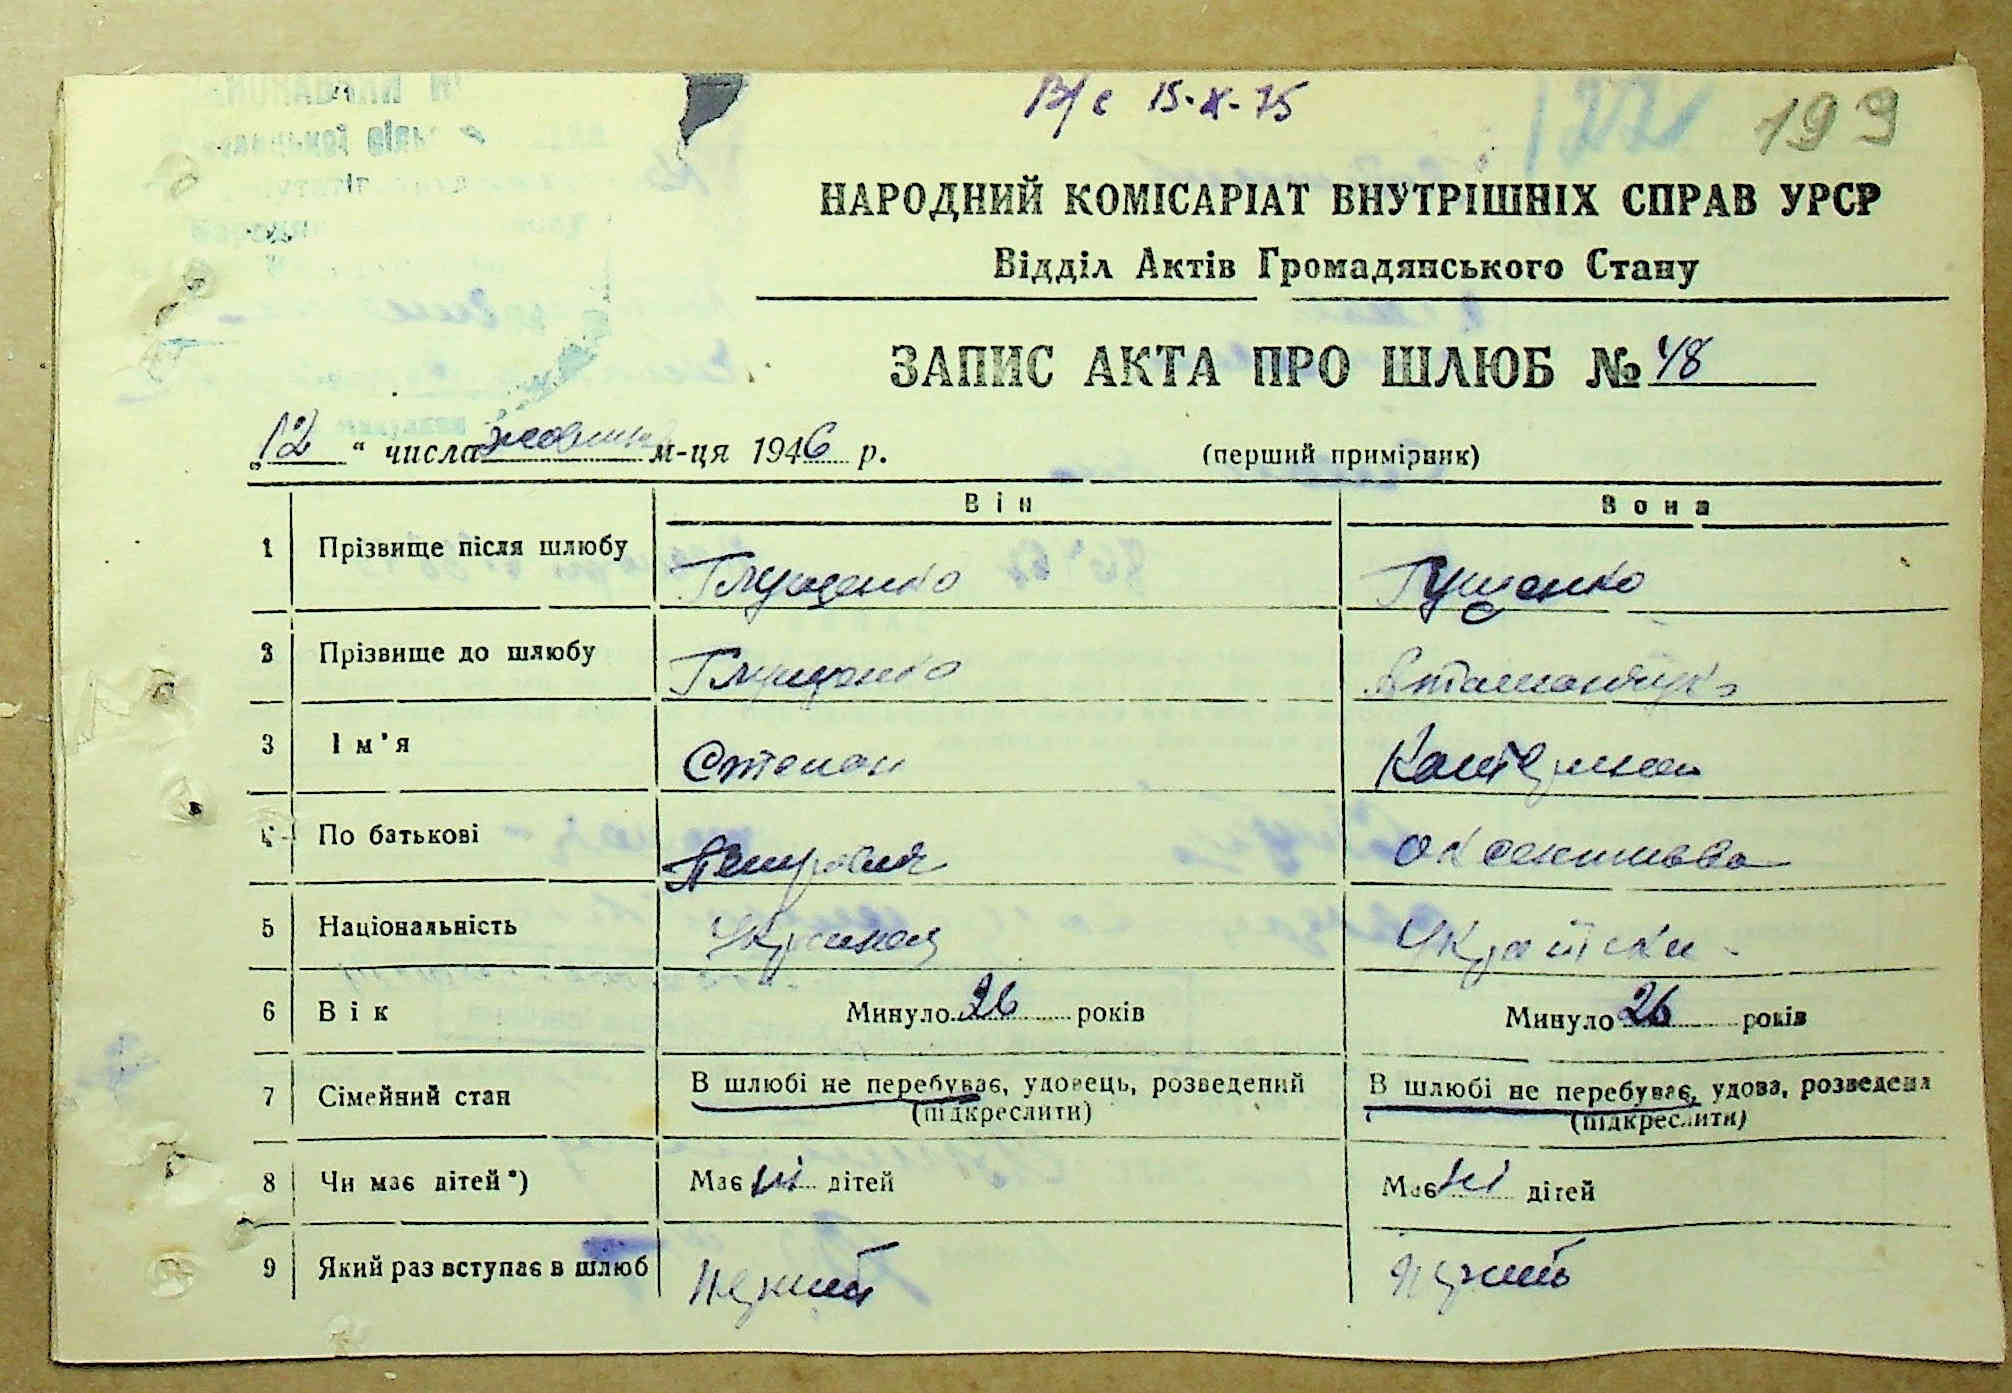 В/с 15-X-75
122 199
НАРОДНИЙ КОМІСАРІАТ ВНУТРІШНІХ СПРАВ УРСР
Відділ Актів Громадянського Стану
ЗАПИС АКТА ПРО ШЛЮБ № 48
„12“ числа жовтня м-ця 1946 р. (перший примірник)
Він Вона
1 Прізвище після шлюбу Глущенко Гущенко
2 Прізвище до шлюбу Глущенко Атаманчук
3 Ім'я Степан Катерина
4 По батькові Петрович Оксентіевна
5 Національність Українец Українка
6 Вік Минуло 26 років Минуло 26 років
7 Сімейний стан В шлюбі не перебуває, удовець, розведений В шлюбі не перебуває, удова, розведена
(підкреслити) (підкреслити)
8 Чи має дітей*) Має ні дітей Має ні дітей
9 Який раз вступає в шлюб Первий Первий